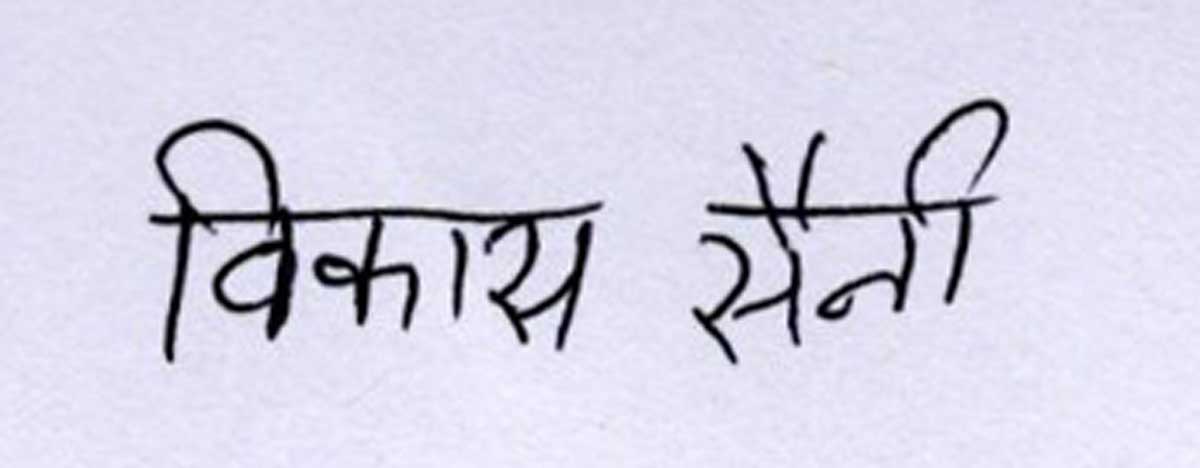 विकास सैनी